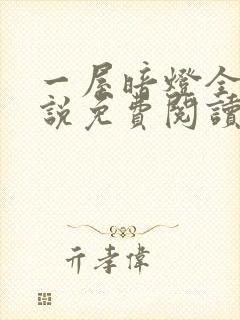 一屋暗燈全
說免費閱讀
亓孝偉